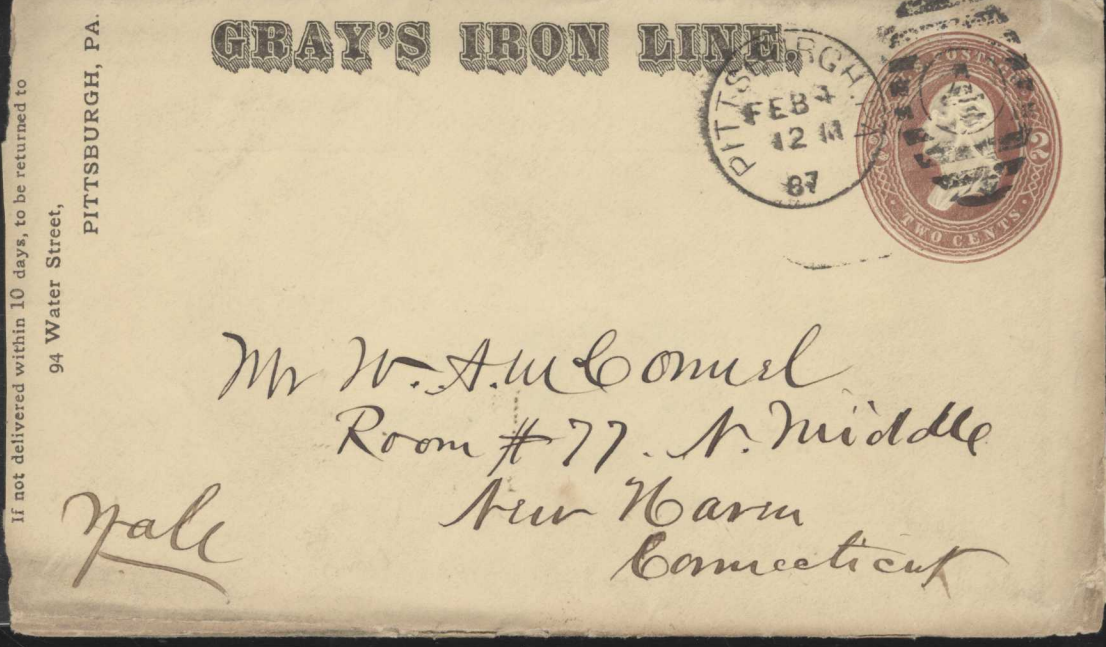 GRAY'S IRON LINE.
If not delivered within 10 days, to be returned to
94 Water Street,
PITTSBURGH, PA.
PITTSBURGH, PA
FEB 4
12 M
87
2 2
TWO CENTS
Mr W. A. McConnel
Room # 77. N. Middle
New Haven
Connecticut
Yale